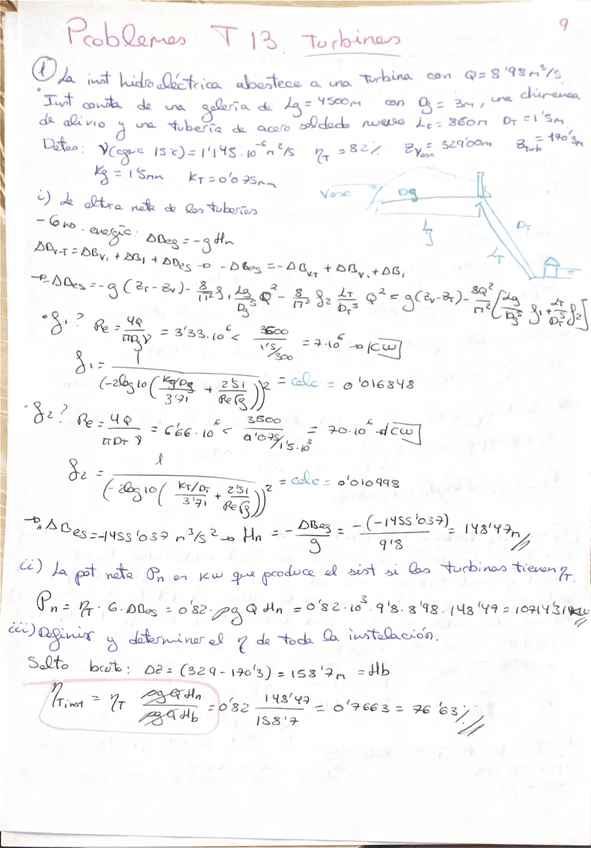 9
Problemas T 13. Turbinas
① La inst hidroeléctrica abastece a una turbina con Q = 8'98 m³/s
Inst consta de una galería de Lg = 4500m con Dg = 3m, una chimenea
de alivio y una tubería de acero soldado nuevo Lc = 860m DT = 1'5m
Datos: ν(agua 15ºc) = 1'145·10⁻⁶ m²/s ηT = 82% Zvaso = 329'00m Zturb = 170'3m
Kg = 1'5mm KT = 0'075mm
Vaso Dg Lg DT LT
i) La altura neta de las tuberías
- Ec. energía: ΔBes = -gHn
ΔBV-T = ΔBV1 + ΔB1 + ΔBes → -ΔBes = -ΔBVT + ΔBV1 + ΔB1
→ -ΔBes = -g(ZT - ZV) - 8/π² f1 Lg/Dg⁵ Q² - 8/π² f2 LT/DT⁵ Q² = g(ZV - ZT) - 8Q²/π² [Lg/Dg⁵ f1 + LT/DT⁵ f2]
· f1? Re = 4Q/πDgν = 3'33·10⁶ < 3500/(1'5/300) = 7·10⁶ → CW
f1 = 1/(-2log10(Kg/Dg/3'71 + 2'51/Re√f))² = calc = 0'016848
· f2? Re = 4Q/πDTν = 6'66·10⁶ < 3500/(0'075/1'5·10³) = 70·10⁶ → CW
f2 = 1/(-2log10(KT/DT/3'71 + 2'51/Re√f))² = calc = 0'010998
→ ΔBes = -1455'037 m³/s² → Hn = -ΔBes/g = -(-1455'037)/9'8 = 148'47m
ii) La pot neta Pn en kw que produce el sist si las turbinas tienen ηT.
Pn = ηT · G · ΔBes = 0'82 · ρgQHn = 0'82·10³·9'8·8'98·148'49 = 10714'31 kw
iii) Definir y determinar el η de toda la instalación.
Salto bruto: ΔZ = (329 - 170'3) = 158'7m = Hb
ηTinst = ηT ρgQHn/ρgQHb = 0'82 148'47/158'7 = 0'7663 = 76'63%